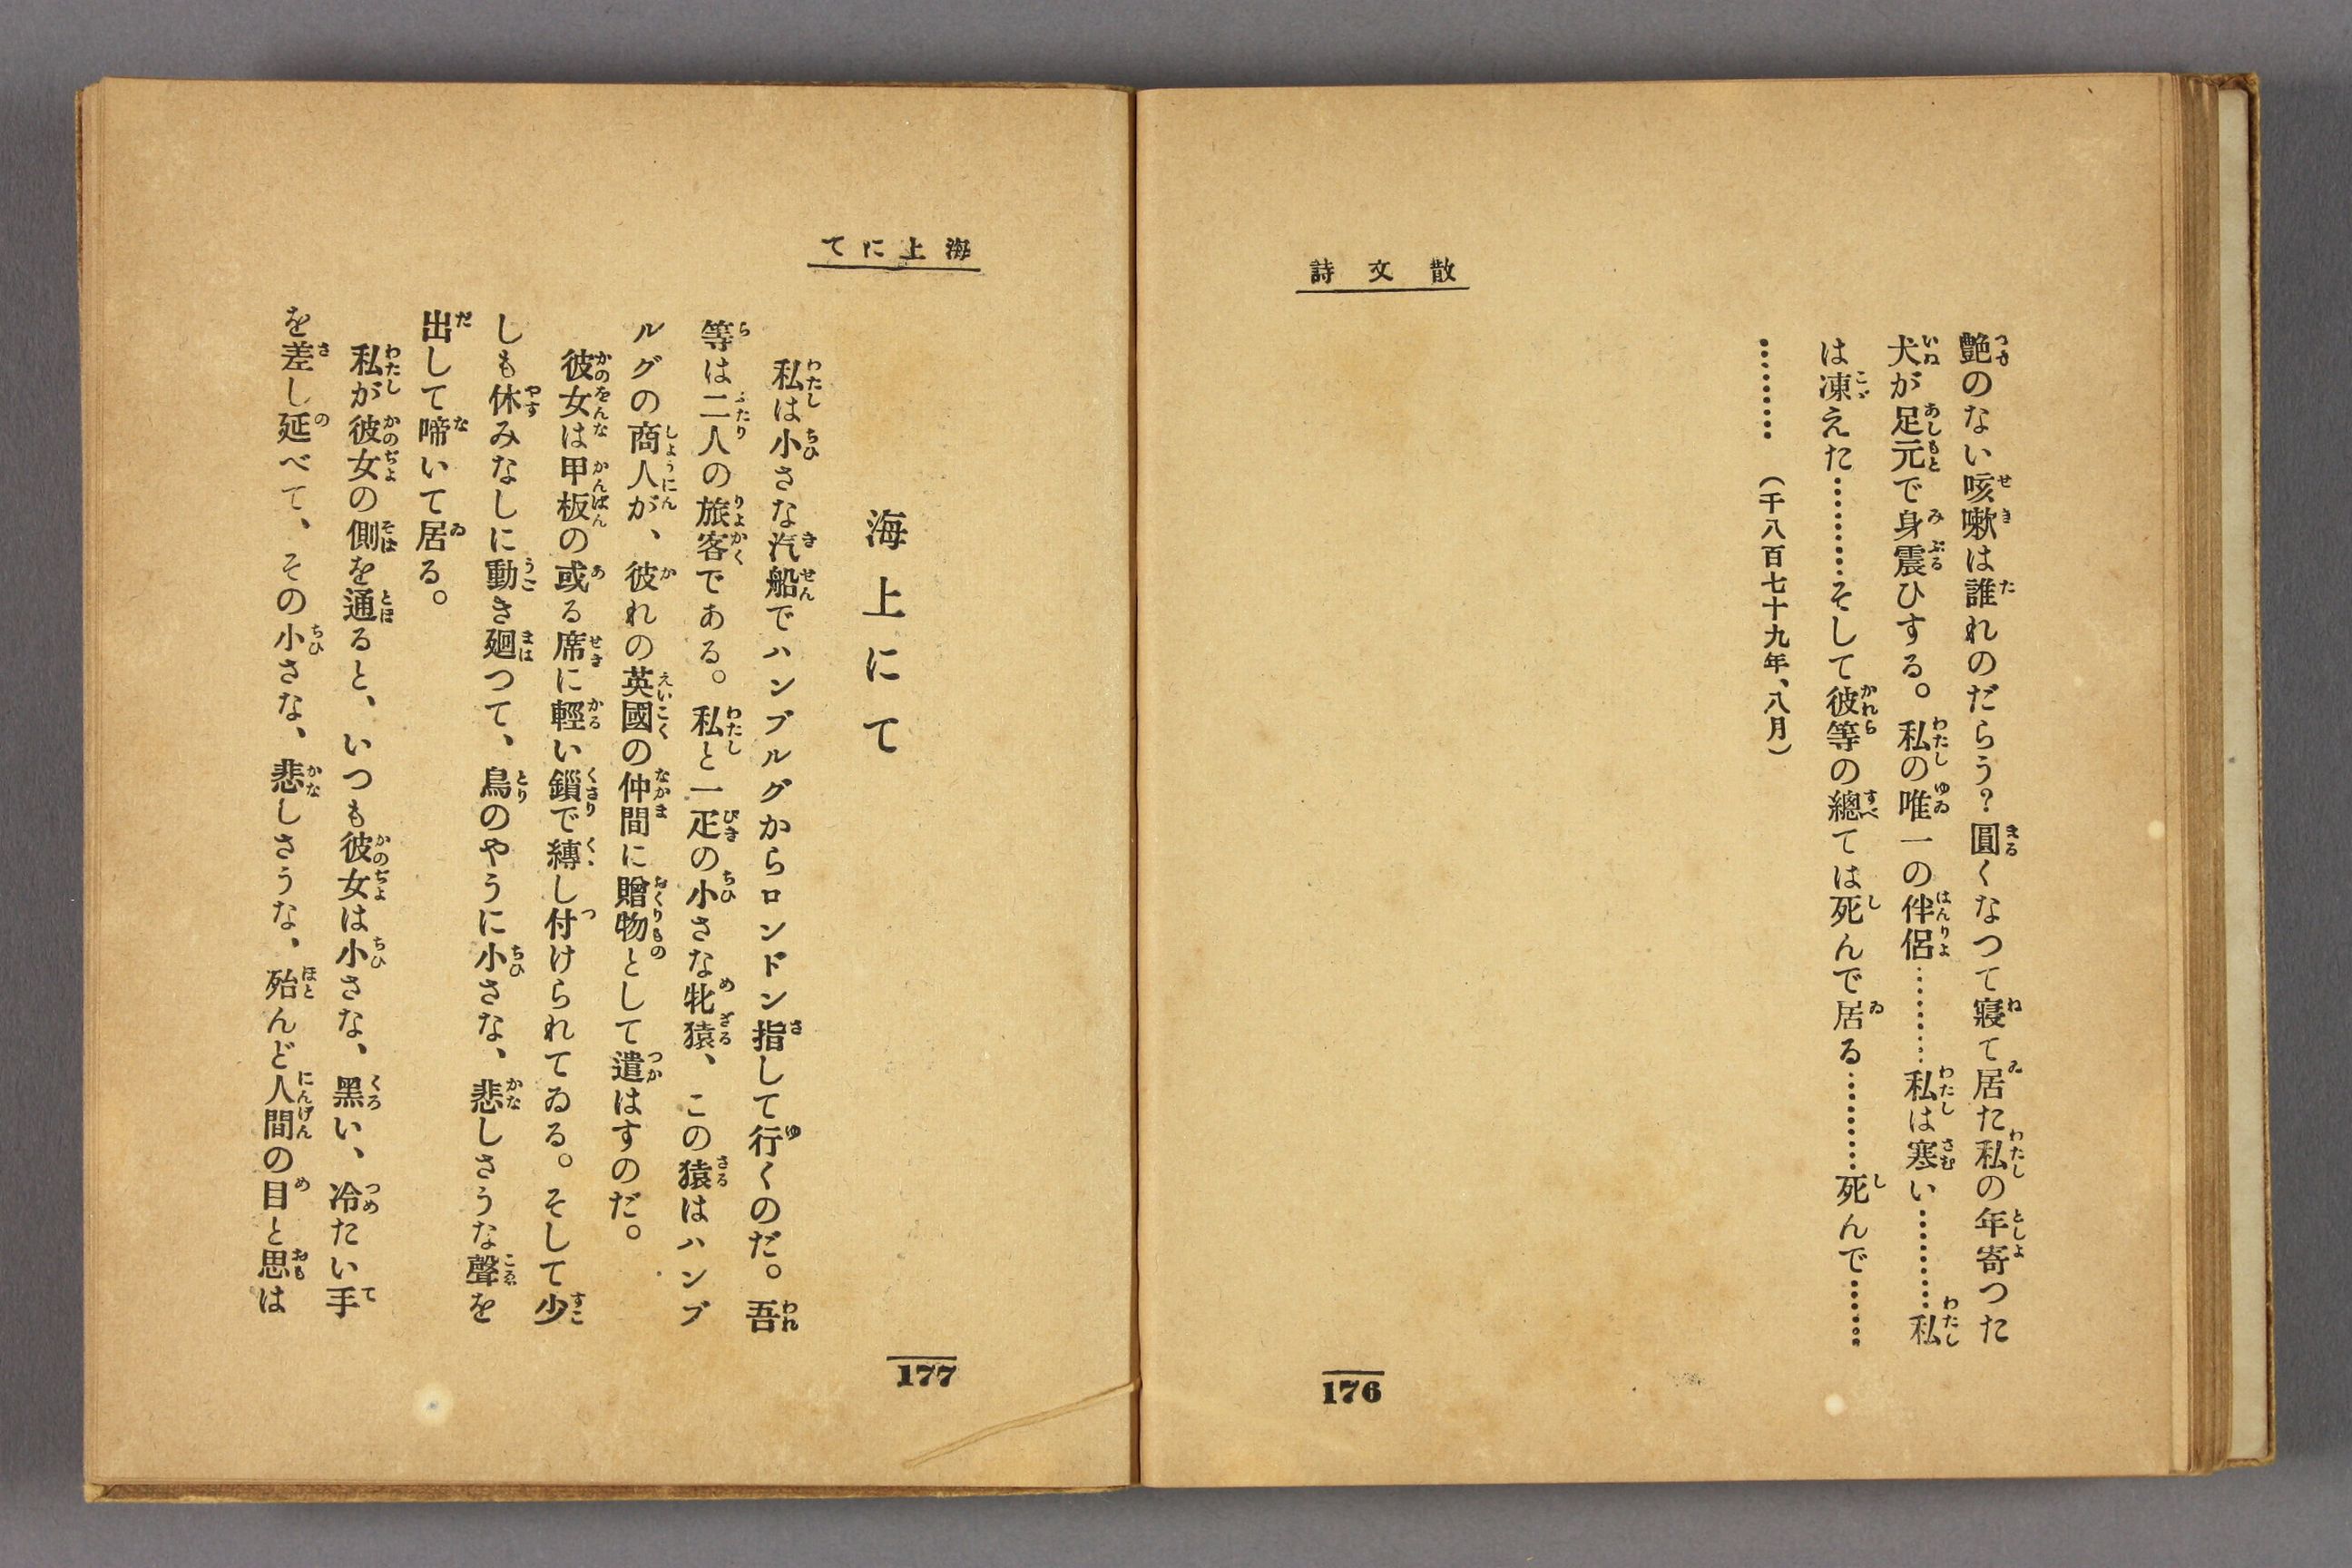 散文詩
艶のない咳嗽は誰れのだらう?圓くなつて寢て居た私の年寄つた
犬が足元で身震ひする。私の唯一の伴侶…………私は寒い…………私
は凍えた…………そして彼等の總ては死んで居る…………死んで………
………(千八百七十九年、八月)
176
海上にて
海上にて
私は小さな汽船でハンブルグからロンドン指して行くのだ。吾
等は二人の旅客である。私と一疋の小さな牝猿、この猿はハンブ
ルグの商人が、彼れの英國の仲間に贈物として遣はすのだ。
彼女は甲板の或る席に輕い鎖で縛し付けられてゐる。そして少
しも休みなしに動き廻つて、鳥のやうに小さな、悲しさうな聲を
出して啼いて居る。
私が彼女の側を通ると、いつも彼女は小さな、黑い、冷たい手
を差し延べて、その小さな、悲しさうな、殆んど人間の目と思は
177